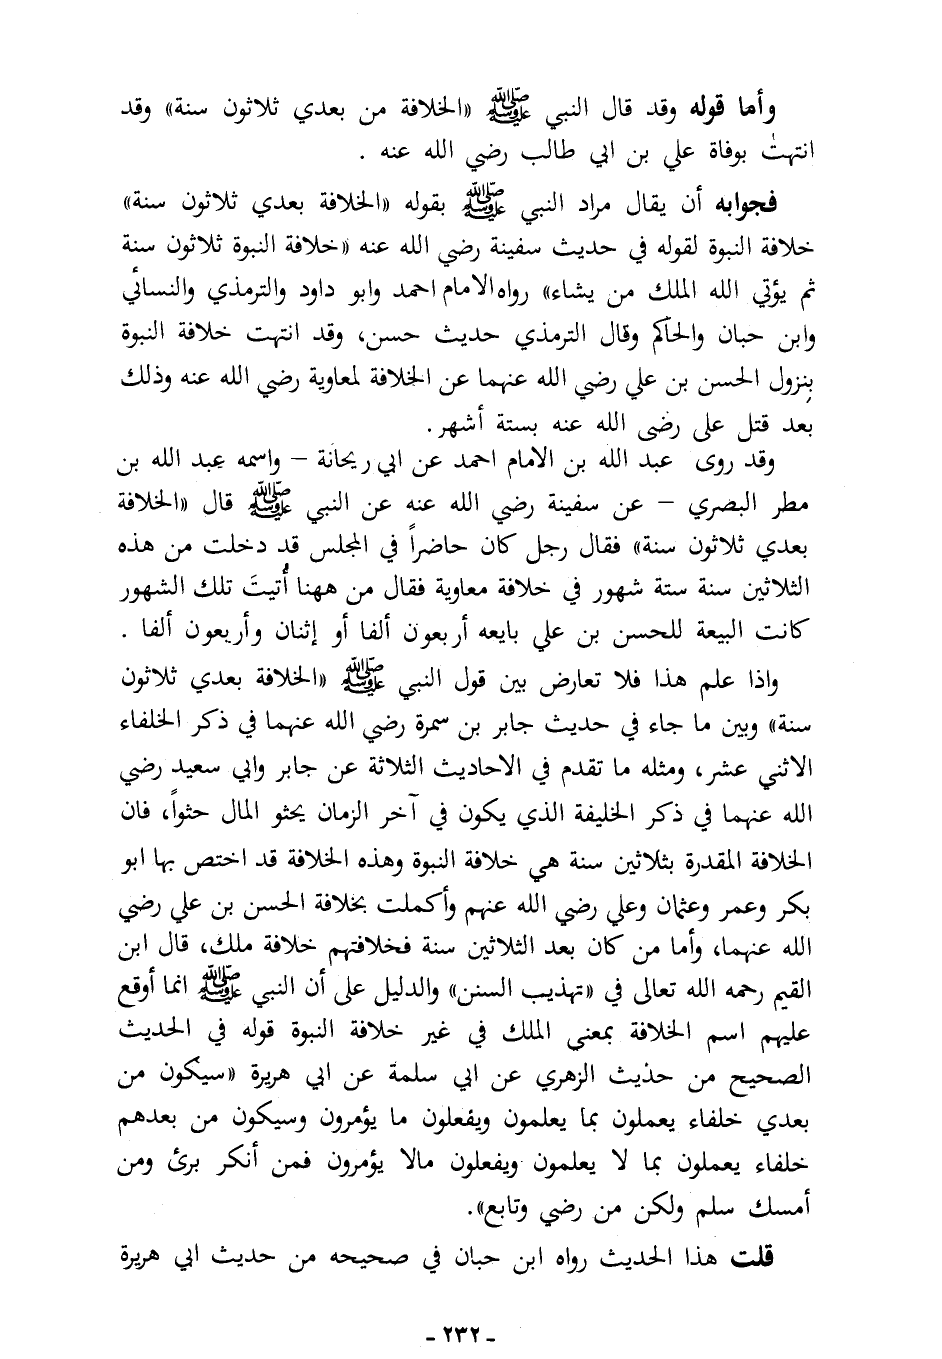 وأما قوله وقد قال النبي ﷺ «الخلافة من بعدي ثلاثون سنة» وقد
انتهت بوفاة علي بن ابي طالب رضي الله عنه .
فجوابه أن يقال مراد النبي ﷺ بقوله «الخلافة بعدي ثلاثون سنة»
خلافة النبوة لقوله في حديث سفينة رضي الله عنه «خلافة النبوة ثلاثون سنة
ثم يؤتي الله الملك من يشاء» رواه الامام احمد وابو داود والترمذي والنسائي
وابن حبان والحاكم وقال الترمذي حديث حسن، وقد انتهت خلافة النبوة
بنزول الحسن بن علي رضي الله عنهما عن الخلافة لمعاوية رضي الله عنه وذلك
بعد قتل على رضى الله عنه بستة أشهر.
وقد روى عبد الله بن الامام احمد عن ابي ريحانة – واسمه عبد الله بن
مطر البصري – عن سفينة رضي الله عنه عن النبي ﷺ قال «الخلافة
بعدي ثلاثون سنة» فقال رجل كان حاضراً في المجلس قد دخلت من هذه
الثلاثين سنة ستة شهور في خلافة معاوية فقال من ههنا أُتيتَ تلك الشهور
كانت البيعة للحسن بن علي بايعه أربعون ألفا أو إثنان وأربعون ألفا .
واذا علم هذا فلا تعارض بين قول النبي ﷺ «الخلافة بعدي ثلاثون
سنة» وبين ما جاء في حديث جابر بن سمرة رضي الله عنهما في ذكر الخلفاء
الاثني عشر، ومثله ما تقدم في الاحاديث الثلاثة عن جابر وابي سعيد رضي
الله عنهما في ذكر الخليفة الذي يكون في آخر الزمان يحثو المال حثواً، فان
الخلافة المقدرة بثلاثين سنة هي خلافة النبوة وهذه الخلافة قد اختص بها ابو
بكر وعمر وعثمان وعلي رضي الله عنهم وأكملت بخلافة الحسن بن علي رضي
الله عنهما، وأما من كان بعد الثلاثين سنة فخلافتهم خلافة ملك، قال ابن
القيم رحمه الله تعالى في «تهذيب السنن» والدليل على أن النبي ﷺ انما أوقع
عليهم اسم الخلافة بمعني الملك في غير خلافة النبوة قوله في الحديث
الصحيح من حذيث الزهري عن ابي سلمة عن ابي هريرة «سيكون من
بعدي خلفاء يعملون بما يعلمون ويفعلون ما يؤمرون وسيكون من بعدهم
خلفاء يعملون بما لا يعلمون ويفعلون مالا يؤمرون فمن أنكر برئ ومن
أمسك سلم ولكن من رضي وتابع».
قلت هذا الحديث رواه ابن حبان في صحيحه من حديث ابي هريرة
- ٢٣٢ -